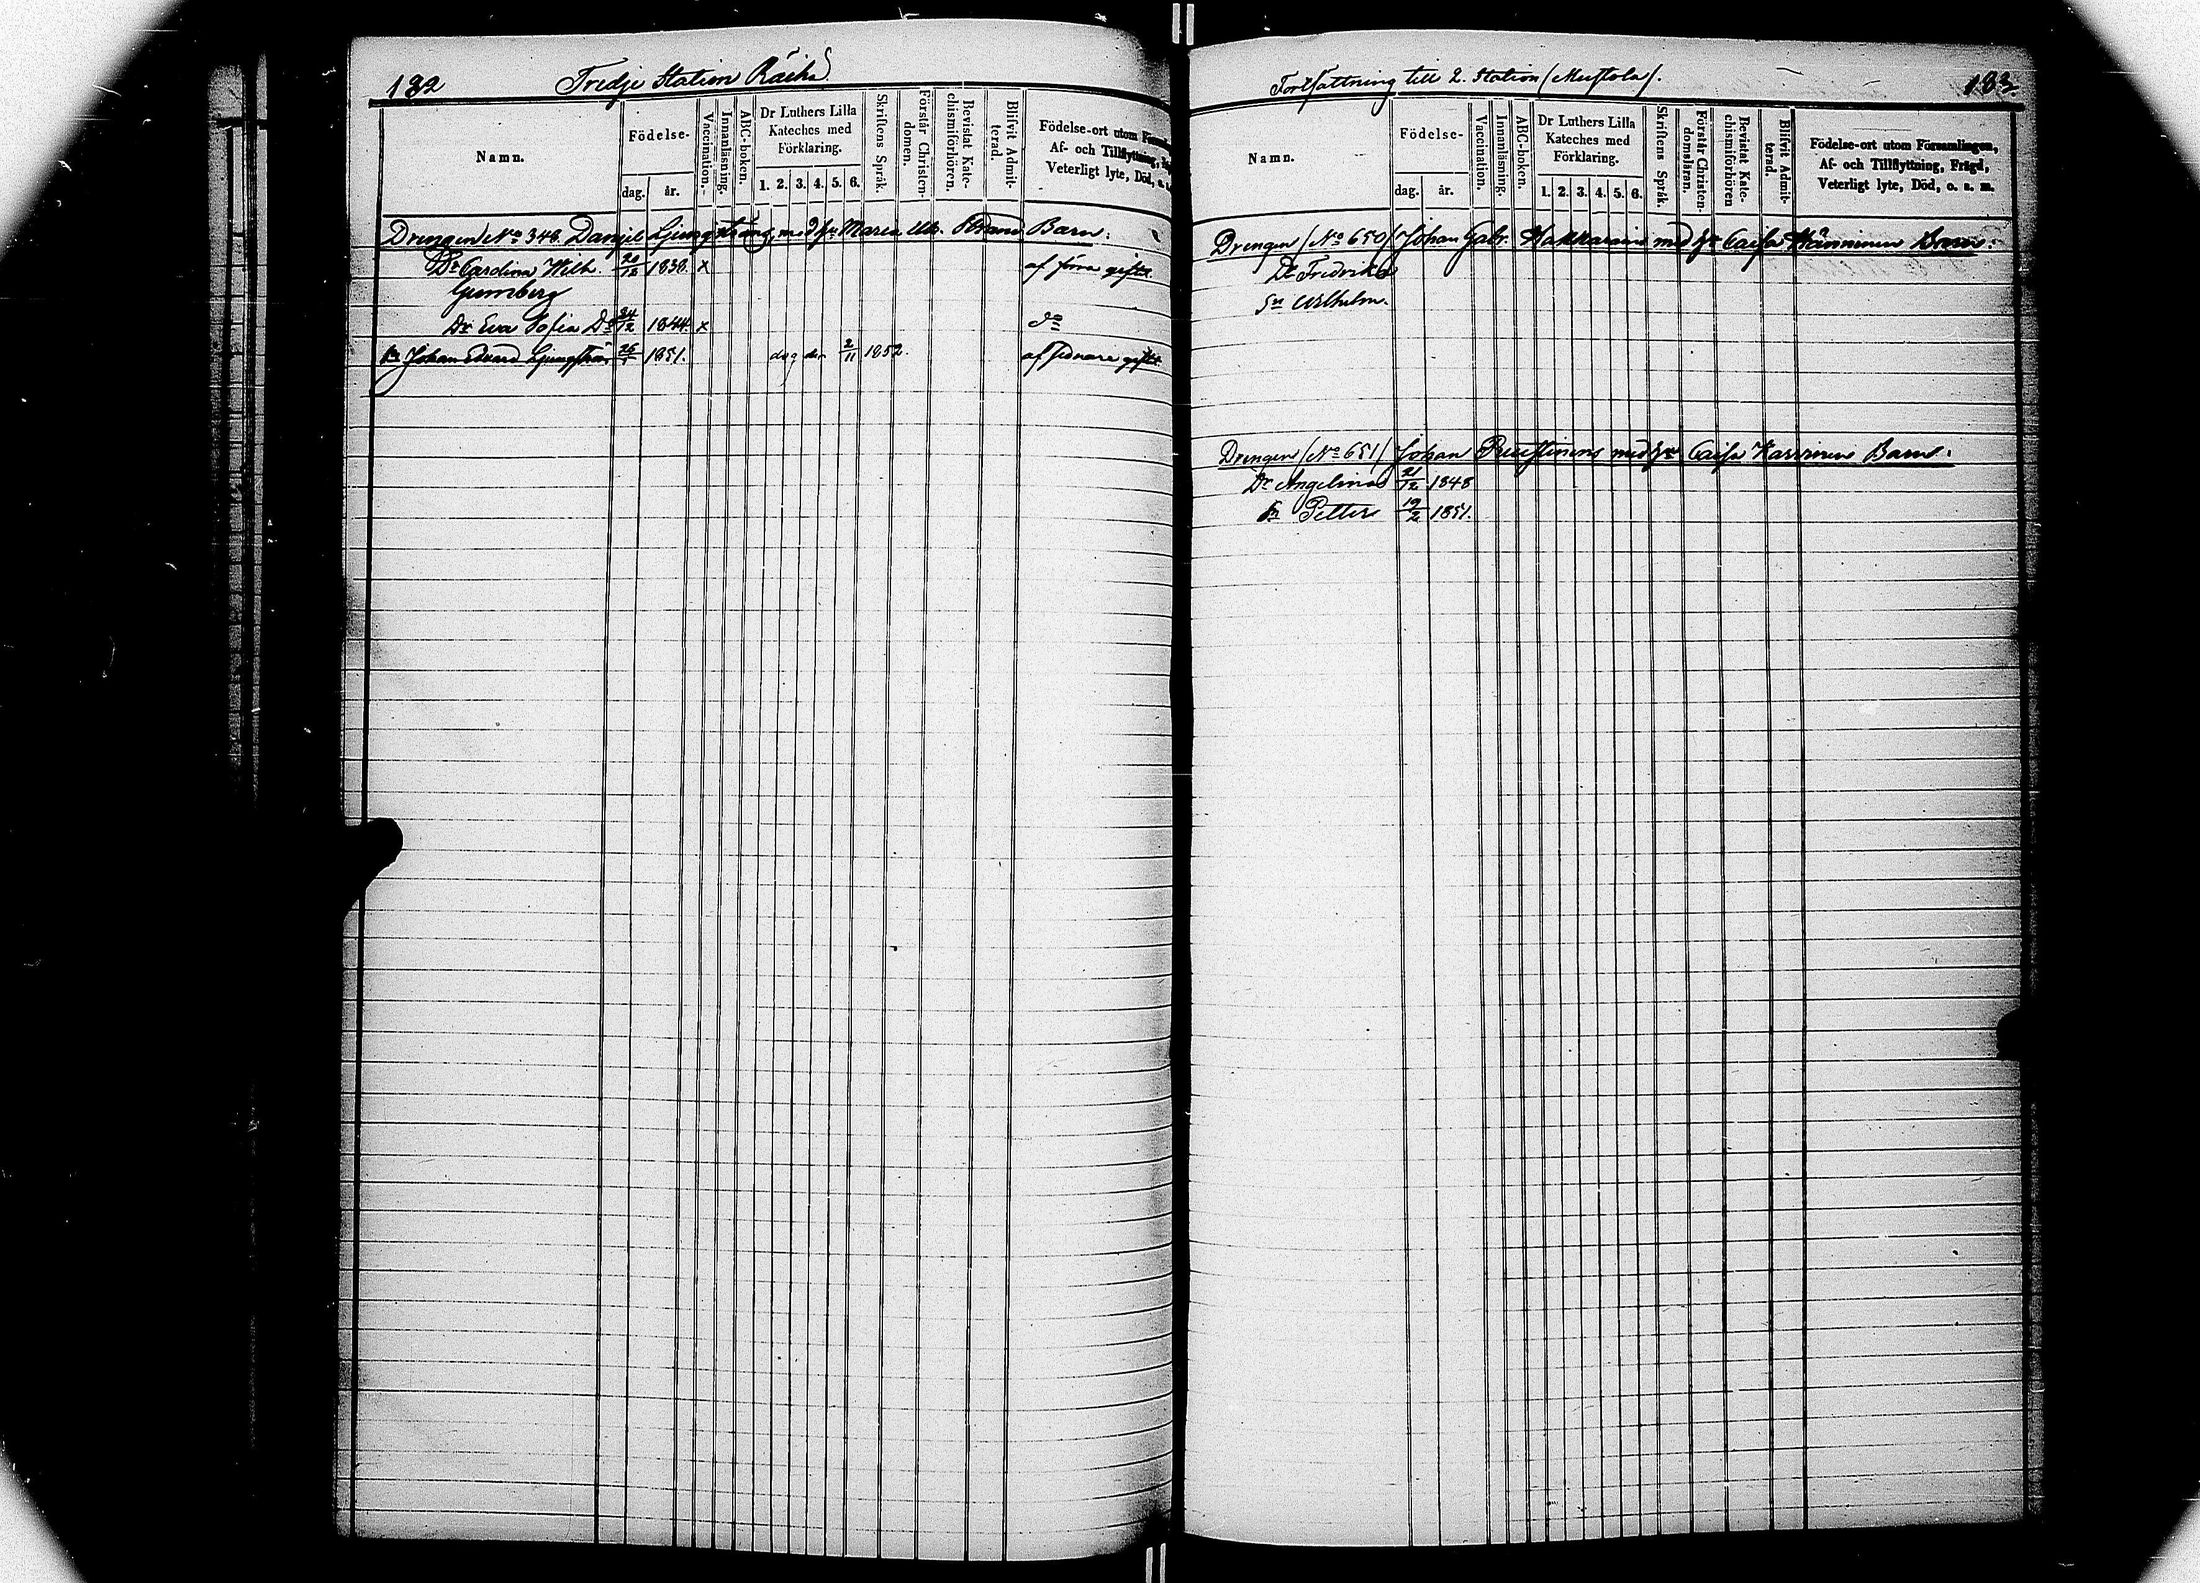 132 Tredje Station Räihä
Namn.
Födelse-
dag. år.
Vaccination.
Innanläsning.
ABC-boken.
Dr Luthers Lilla
Kateches med
Förklaring.
1. 2. 3. 4. 5. 6.
Skriftens Språk.
Förstår Christen-
domen.
Bevistat Kate-
chismiförhören.
Blifvit Admit-
terad.
Födelse-ort utom
Af- och Tillflyttning,
Veterligt lyte, Död,
Drengen No 348. Daniel Ljungsträng, med hu Maria Ulr. Barn:
Dr Carolina Wilh. 20/12 1838. x af förra giftet
Gumberg
Dr Eva Sofia Do 24/12 1844. x do
Sn Johan Edvard 26 1851. dog den 2/11 1852. af sednare giftet
Fortsättning till 2. Station (Mustola). 133.
Namn.
Födelse-
dag. år.
Vaccination.
Innanläsning.
ABC-boken.
Dr Luthers Lilla
Kateches med
Förklaring.
1. 2. 3. 4. 5. 6.
Skriftens Språk.
Förstår Christen-
domsläran.
Bevistat Kate-
chismiförhören
Blifvit Admit-
terad.
Födelse-ort utom Församlingen,
Af- och Tillflyttning, Frägd,
Veterligt lyte, Död, o. s. m.
Drengen (No 650) Johan Gabr. Hakkarains med hu Caisa Hänninen Barn:
Dr Fredrika
Sn Wilhelm.
Drengen (No 651) Johan med hu Caisa Barn:
Dr Angelina 21/12 1848
Sn Petter 19/2 1851.